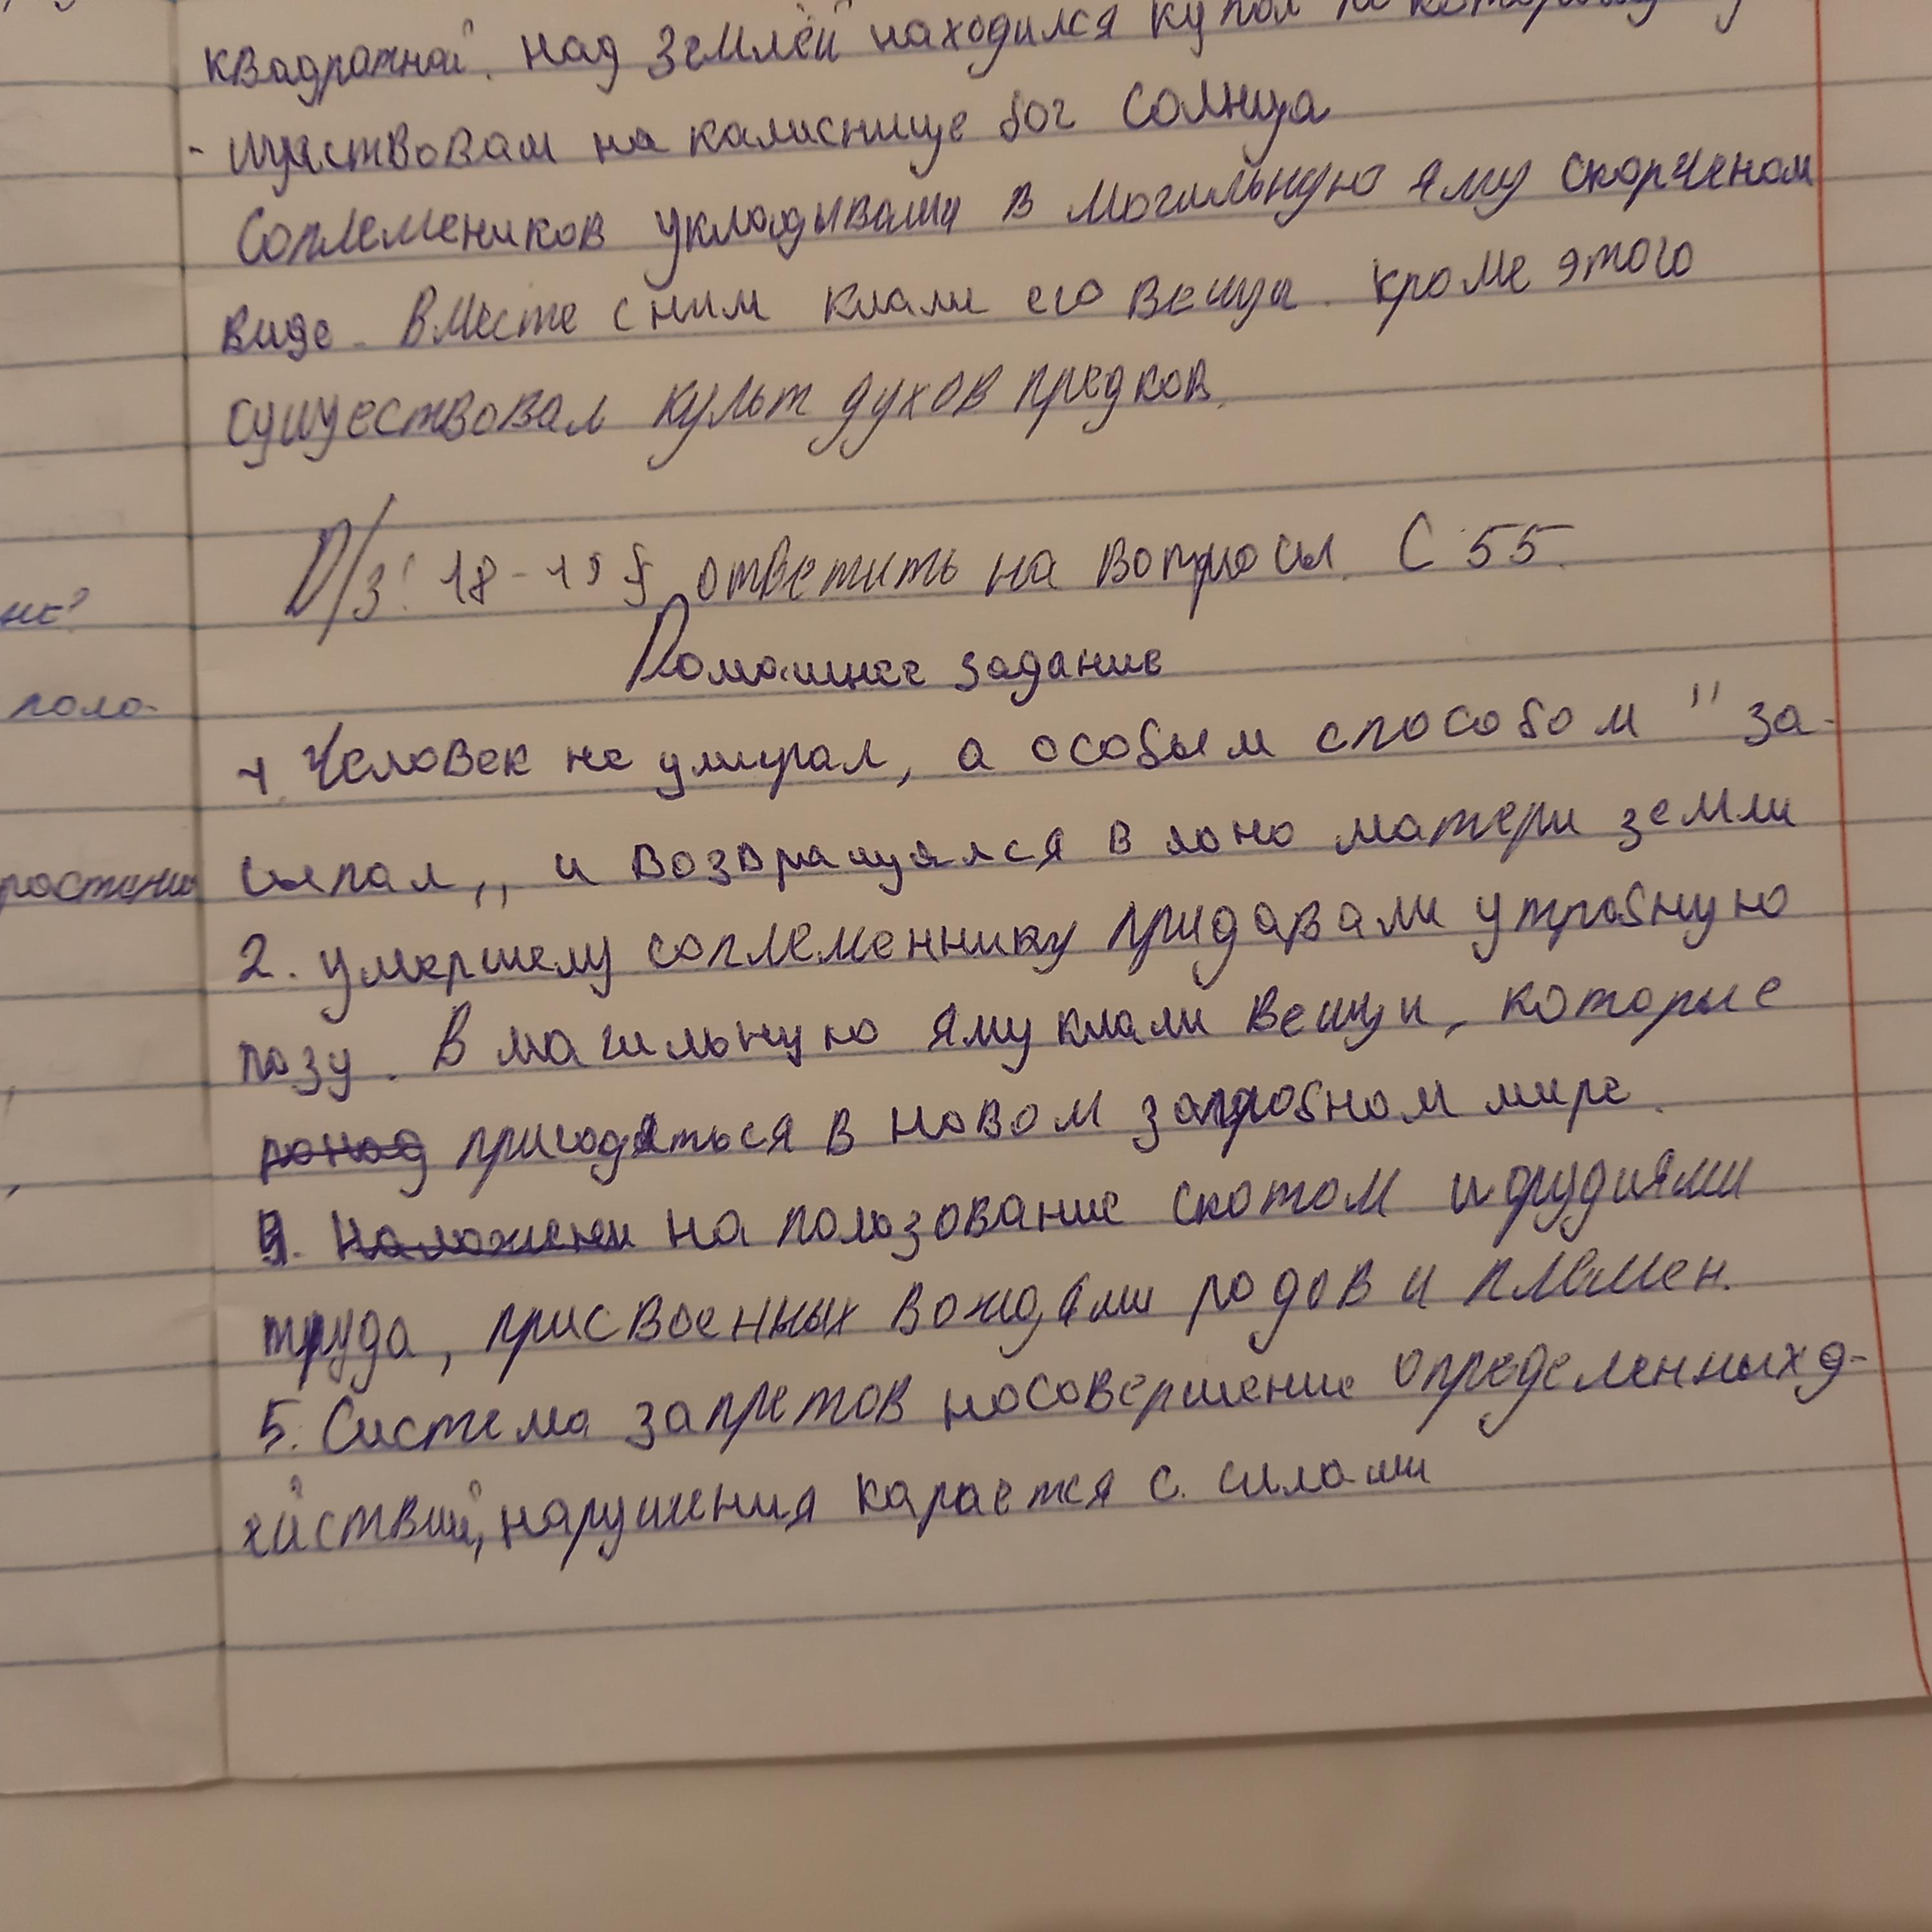 квадратной. Над землёй находился купол по которому
- шествовал на калиснице бог Солнца
Соплемеников укладывали в могильную яму скорченом
виде. Вместе с ним клали его вещи. Кроме этого
существовал культ духов предков.
Д/з: 18-19 § ответить на вопросы. С 55.
Домашнее задание
1. Человек не умирал, а особым способом "за-
сыпал,, и возвращуялся в лоно матери земли
2. умершему соплеменнику придавали утробную
позу. В магильную яму клали вещи, которые
пригодяться в новом загробном мире.
на пользование скотом и орудиями
труда, присвоенных вождями родов и племен.
5. Система запретов на совершение определенных д-
ействий, нарушения карается с. силами
не?
поло-